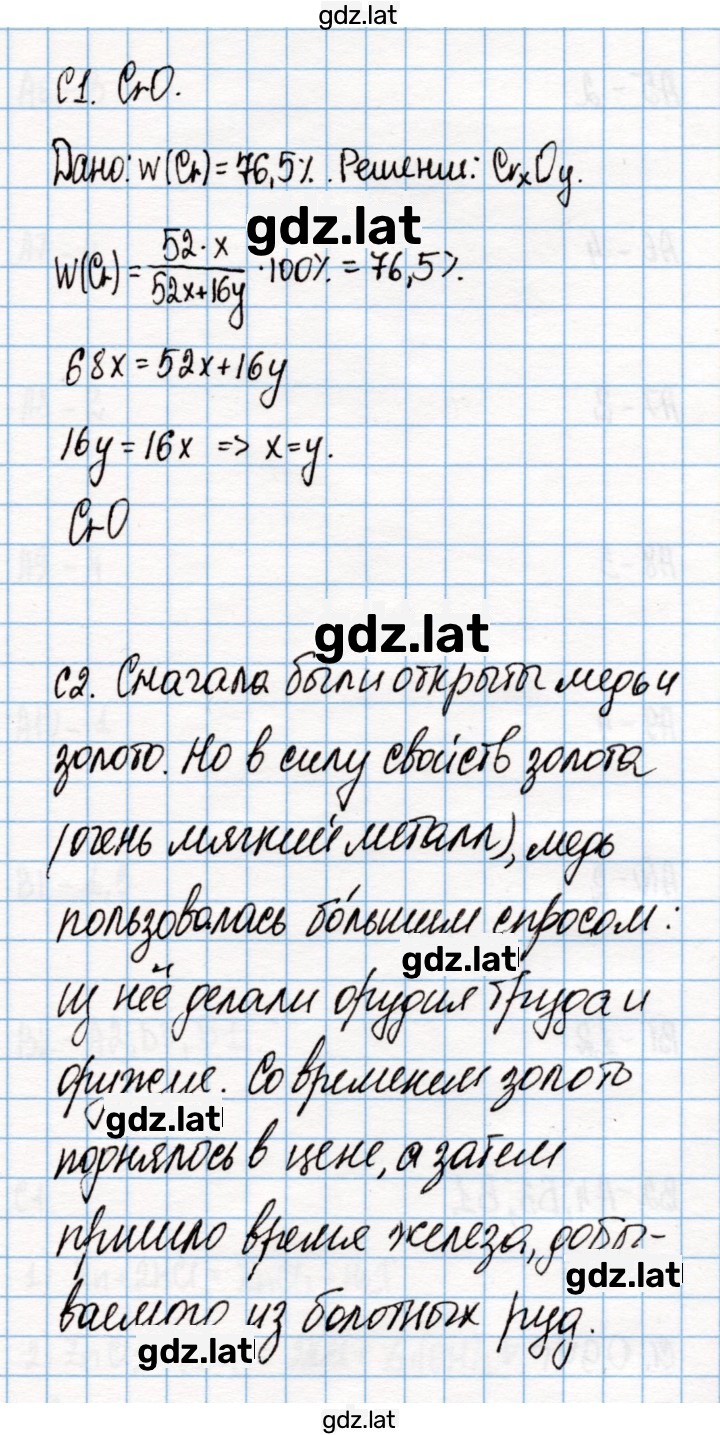 gdz.lat
С1. CrO.
Дано: w(Cr) = 76,5%. Решение: CrxOy.
gdz.lat
w(Cr) = 52·x / 52x+16y ·100% = 76,5%.
68x = 52x+16y
16y = 16x => x=y.
CrO
gdz.lat
С2. Сначала были открыты медь и
золото. Но в силу свойств золота
(очень мягкий металл), медь
пользовалась бо́льшим спросом:
gdz.lat
из неё делали орудия труда и
оружие. Со временем золото
gdz.lat
поднялось в цене, а затем
пришло время железа, добы-
gdz.lat
ваемого из болотных руд.
gdz.lat
gdz.lat